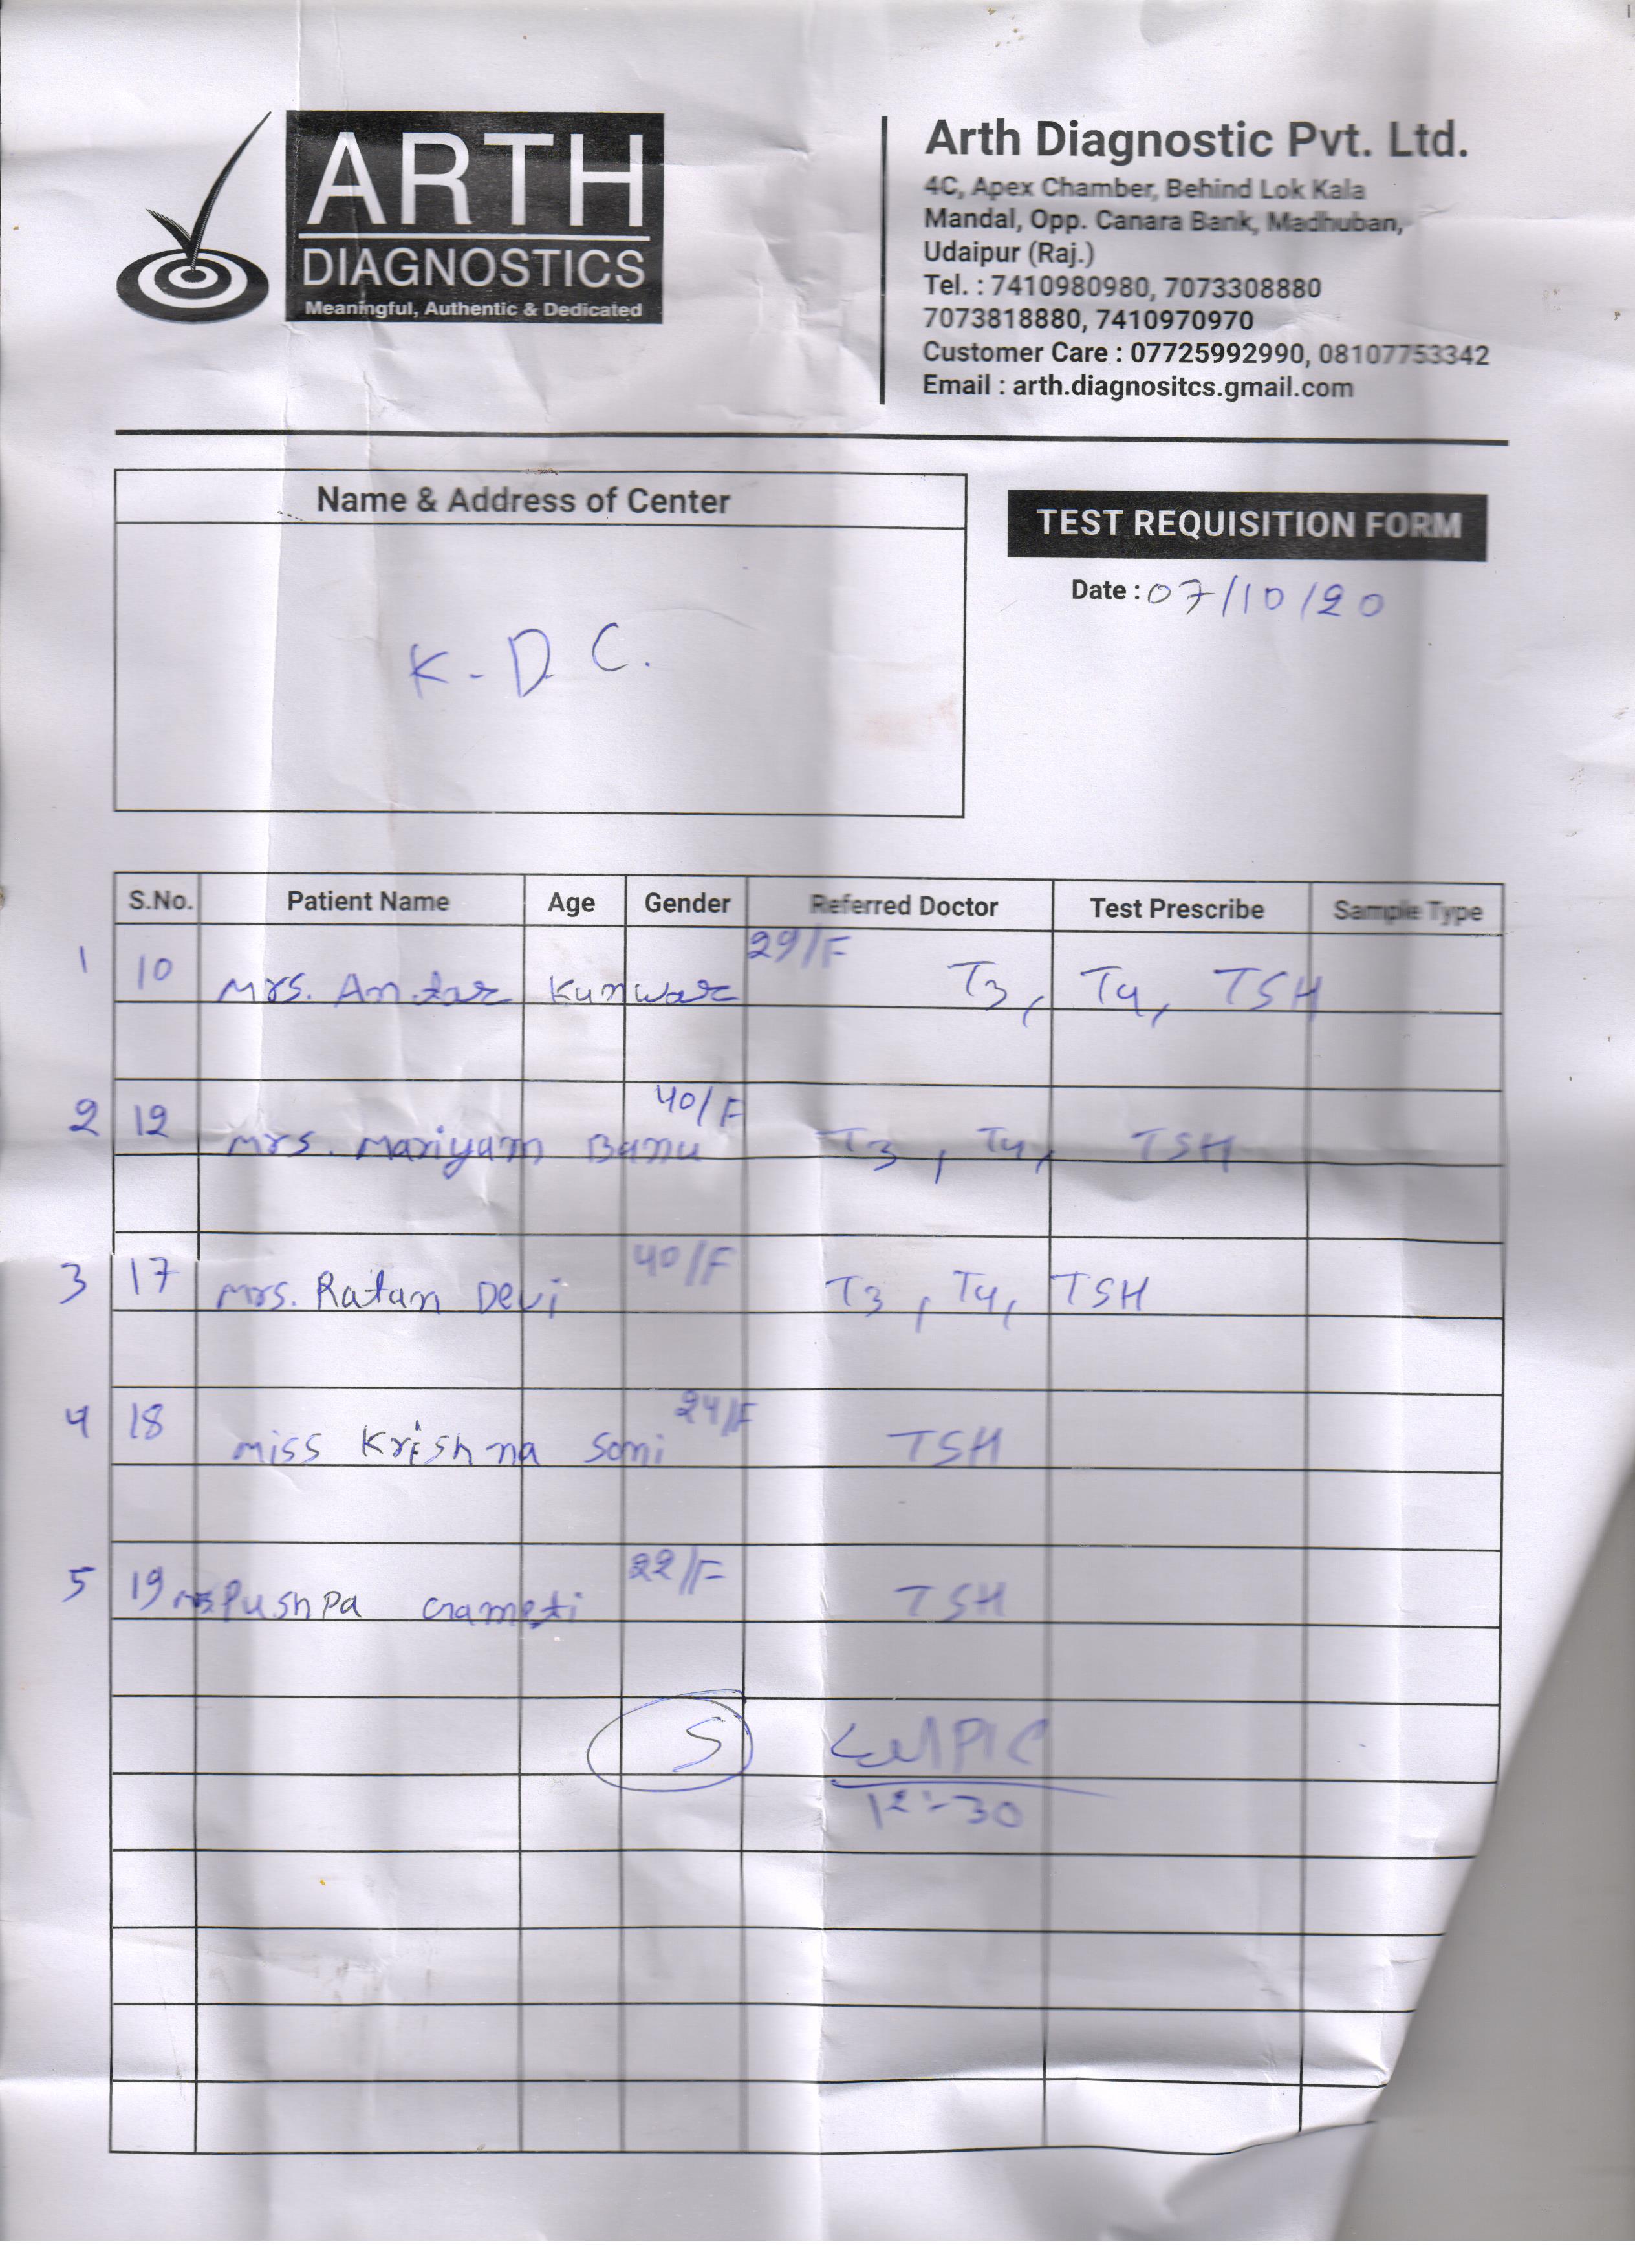 ARTH
DIAGNOSTICS
Meaningful, Authentic & Dedicated
Arth Diagnostic Pvt. Ltd.
4C, Apex Chamber, Behind Lok Kala
Mandal, Opp. Canara Bank, Madhuban,
Udaipur (Raj.)
Tel. : 7410980980, 7073308880
7073818880, 7410970970
Customer Care : 07725992990, 08107753342
Email : arth.diagnositcs.gmail.com
Name & Address of Center
K-D.C.
TEST REQUISITION FORM
Date : 07/10/20
S.No. Patient Name Age Gender Referred Doctor Test Prescribe Sample Type
1 10 Mrs. Antar Kunwar 29/F T3, T4, TSH
2 12 Mrs. Mariyam Banu 40/F T3, T4, TSH
3 17 Mrs. Ratan Devi 40/F T3, T4, TSH
4 18 Miss Krishna Soni 24/F TSH
5 19 Pushpa 22/F TSH
5
12:-30